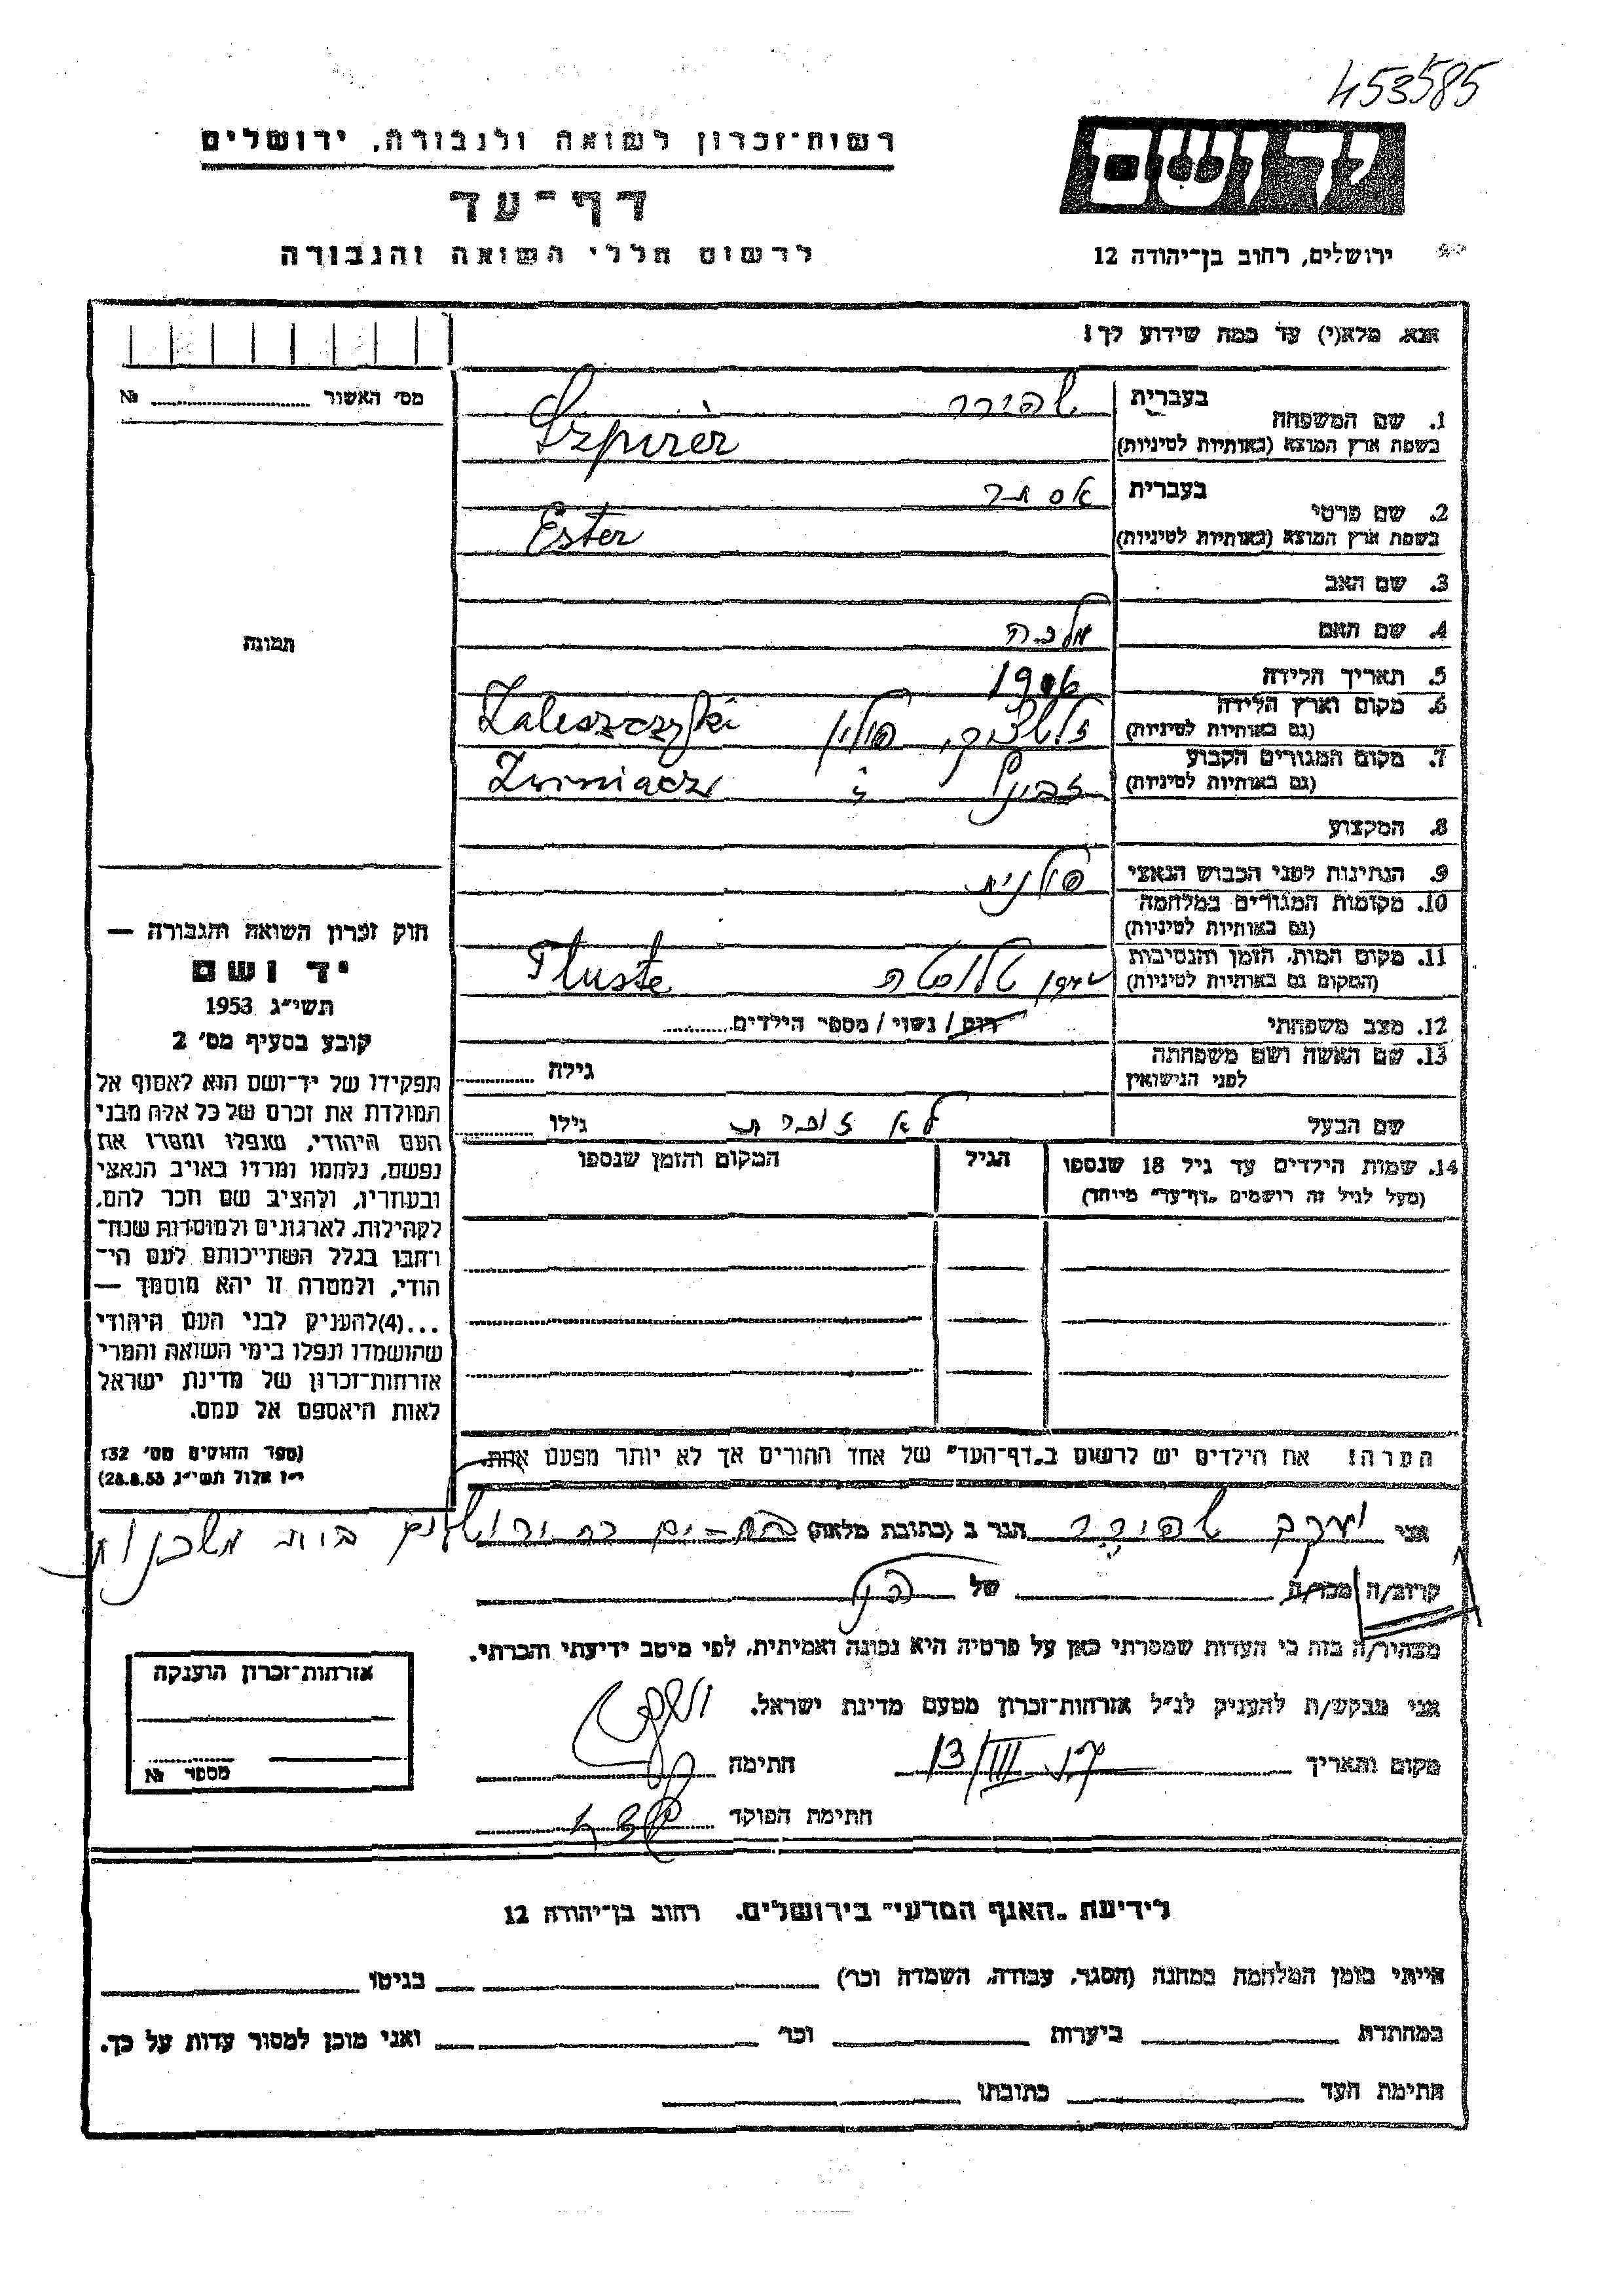 453585
רשות־זכרון לשואה ולגבורה, ירושלים
יד ושם
דף־עד
לרשום חללי השואה והגבורה
ירושלים, רחוב בן־יהודה 12
אנא, מלא(י) עד כמה שידוע לך!
מס׳ האשור ........ №
1. שם המשפחה
בעברית שפירר
בשפת ארץ המוצא (באותיות לטיניות) Szpirer
2. שם פרטי
בעברית אסתר
בשפת ארץ המוצא (באותיות לטיניות) Ester
3. שם האב
4. שם האם מלכה
תמונה
5. תאריך הלידה 1906
6. מקום וארץ הלידה
(גם באותיות לטיניות) פולין Zaleszczyki
7. מקום המגורים הקבוע
(גם באותיות לטיניות) Zwiniacz
8. המקצוע
9. הנתינות לפני הכבוש הנאצי פולנית
10. מקומות המגורים במלחמה
(גם באותיות לטיניות)
11. מקום המות, הזמן והנסיבות
(המקום גם באותיות לטיניות) טלוסטה Tluste
12. מצב משפחתי רווק / נשוי / מספר הילדים
13. שם האשה ושם משפחתה
לפני הנישואין גילה
שם הבעל לא זוכרת גילו
14. שמות הילדים עד גיל 18 שנספו הגיל המקום והזמן שנספו
(מעל לגיל זה רושמים „דף־עד” מיוחד)
חוק זכרון השואה והגבורה —
יד ושם
תשי״ג 1953
קובע בסעיף מס׳ 2
תפקידו של יד־ושם הוא לאסוף אל
המולדת את זכרם של כל אלה מבני
העם היהודי, שנפלו ומסרו את
נפשם, נלחמו ומרדו באויב הנאצי
ובעוזריו, ולהציב שם וזכר להם,
לקהילות, לארגונים ולמוסדות שנח־
רבו בגלל השתייכותם לעם הי־
הודי, ולמטרה זו יהא מוסמך —
...(4) להעניק לבני העם היהודי
שהושמדו ונפלו בימי השואה והמרי
אזרחות־זכרון של מדינת ישראל
לאות היאספם אל עמם.
(ספר החוקים מס׳ 132
י״ז אלול תשי״ג 28.8.53)
הערה! את הילדים יש לרשום ב„דף־העד” של אחד ההורים אך לא יותר מפעם אחת.
אני יעקב שפירר הגר ב (כתובת מלאה) בית משכנות
קרוב/ה מכר/ה של
מצהיר/ה בזה כי העדות שמסרתי כאן על פרטיה היא נכונה ואמיתית, לפי מיטב ידיעתי והכרתי.
אני מבקש/ת להעניק לנ״ל אזרחות־זכרון מטעם מדינת ישראל.
מקום ותאריך 13/III חתימה
חתימת הפוקד
אזרחות־זכרון הוענקה
מספר №
לידיעת „האגף המדעי” בירושלים, רחוב בן־יהודה 12
הייתי בזמן המלחמה במחנה (הסגר, עבודה, השמדה וכו׳) בגיטו
במחתרת ביערות וכו׳ ואני מוכן למסור עדות על כך.
חתימת העד כתובתו